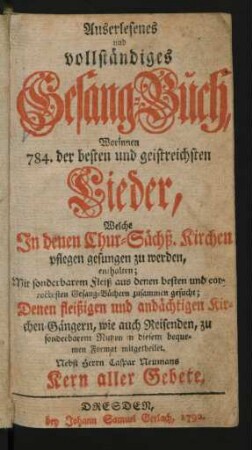 Auserlesenes
und
vollständiges
Gesang-Buch,
Worinnen
784. der besten und geistreichsten
Lieder,
Welche
In denen Chur-Sächß. Kirchen
pflegen gesungen zu werden,
enthalten;
Mit sonderbarem Fleiß aus denen besten und cor-
rectesten Gesang-Büchern zusammen gesucht;
Denen fleißigen und andächtigen Kir-
chen-Gängern, wie auch Reisenden, zu
sonderbarem Nutzen in diesem beque-
men Format mitgetheilet.
Nebst Herrn Caspar Neumans
Kern aller Gebete.
DRESDEN,
bey Johann Samuel Gerlach, 1792.